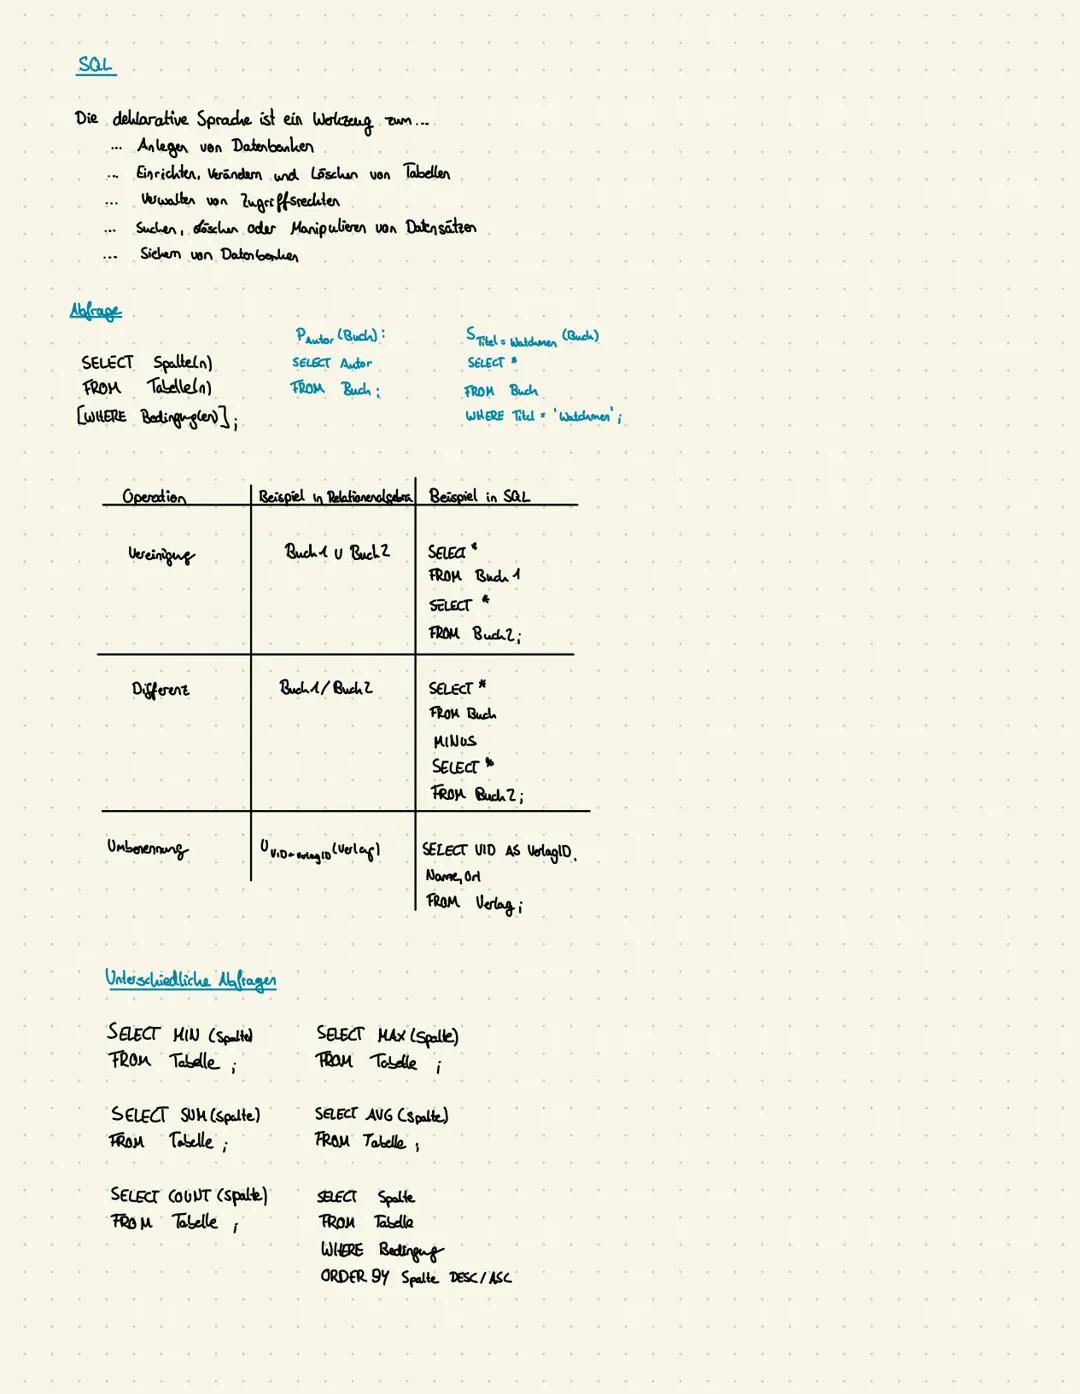 SQL
Die deklarative Sprache ist ein Werkzeug zum...
... Anlegen von Datenbanken
... Einrichten, Verändern und Löschen von Tabellen
... Verwalten von Zugriffsrechten
... Suchen, Löschen oder Manipulieren von Datensätzen
... Sichern von Datenbanken
Abfrage
SELECT Spalte(n)
FROM Tabelle(n)
[WHERE Bedingung(en)];
P Autor (Buch):
SELECT Autor
FROM Buch;
S Titel = Watchmen (Buch)
SELECT *
FROM Buch
WHERE Titel = 'Watchmen';
Operation Beispiel in Relationenalgebra Beispiel in SQL
Vereinigung Buch1 ∪ Buch2 SELECT *
FROM Buch1
SELECT *
FROM Buch2;
Differenz Buch1/Buch2 SELECT *
FROM Buch
MINUS
SELECT *
FROM Buch2;
Umbenennung U VID←VerlagID (Verlag) SELECT VID AS VerlagID,
Name, Ort
FROM Verlag;
Unterschiedliche Abfragen
SELECT MIN (Spalte)
FROM Tabelle;
SELECT MAX (Spalte)
FROM Tabelle;
SELECT SUM (Spalte)
FROM Tabelle;
SELECT AVG (Spalte)
FROM Tabelle;
SELECT COUNT (Spalte)
FROM Tabelle;
SELECT Spalte
FROM Tabelle
WHERE Bedingung
ORDER BY Spalte DESC/ASC